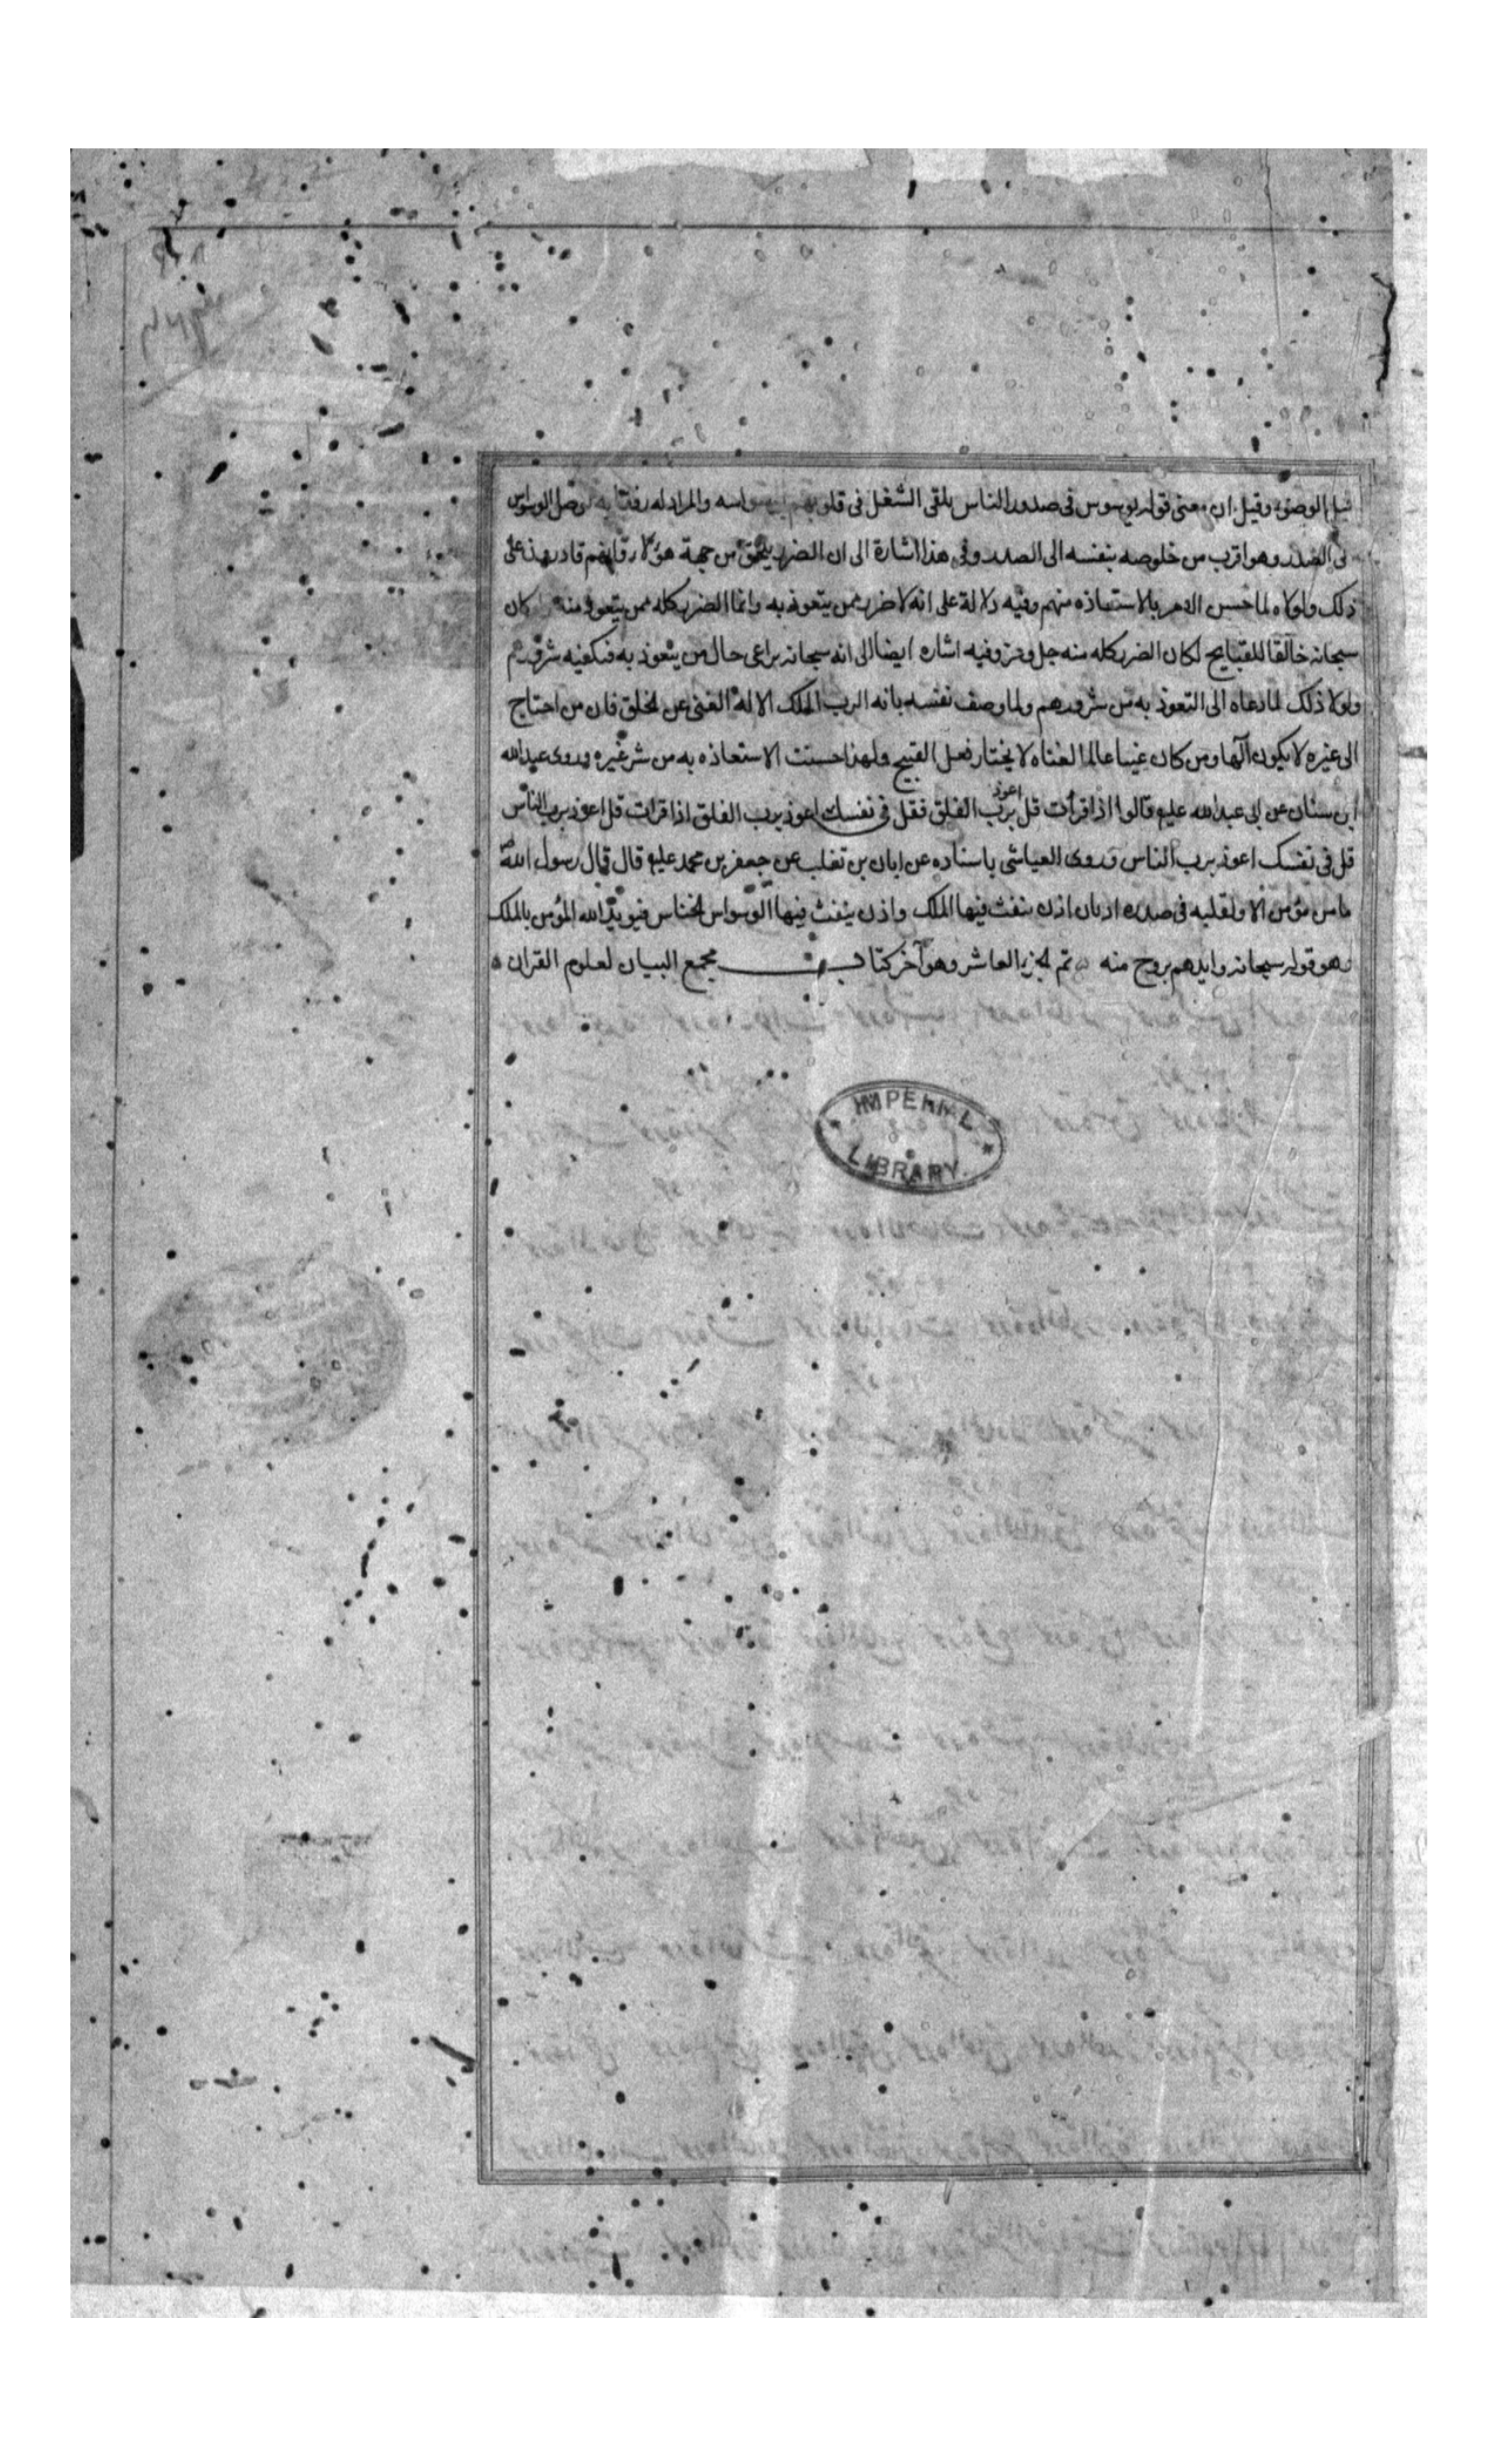 قبل الوضوء وقيل ان معنى قوله يوسوس فى صدور الناس يلقى الشغل فى قلوبهم بوسواسه والمراد له رفقا به يوصل الوسواس
الى الصدر وهو اقرب من خلوصه بنفسه الى الصدر وفى هذا اشارة الى ان الضرر يلحق من جهة هؤلا وانهم قادرون على
ذلك ولولاه لما حسن الامر بالاستعاذه منهم وفيه دلالة على انه لا ضرر ممن يتعوذ به وانما الضرر كله ممن يتعوذ منه كان
سبحانه خالقا للقبايح لكان الضرر كله منه جل وعز وفيه اشاره ايضا الى انه سبحانه يراعى حال من يتعوذ به فيكفيه شرورهم
ولولا ذلك لما دعاه الى التعوذ به من شرورهم ولما وصف نفسه بانه الرب الملك الاله الغنى عن الخلق فان من احتاج
الى غيره لا يكون الها ومن كان غنيا عالما لغناه لا يختار فعل القبيح ولهذا حسنت الاستعاذه به من شر غيره وروى عبدالله
ابن سنان عن ابى عبدالله عليه قالوا اذا قرأت قل اعوذ برب الفلق فقل فى نفسك اعوذ برب الفلق اذا قرات قل اعوذ برب الناس
قل فى نفسك اعوذ برب الناس وروى العياشى باسناده عن ابان بن تغلب عن جعفر بن محمد عليه قال قال رسول الله
ما من مؤمن الا ولقلبه فى صدره اذنان اذن ينفث فيها الملك واذن ينفث فيها الوسواس الخناس فيؤيد الله المؤمن بالملك
وهو قوله سبحانه وايدهم بروح منه تم الجزء العاشر وهو آخر كتاب مجمع البيان لعلوم القران
IMPERIAL
LIBRARY.